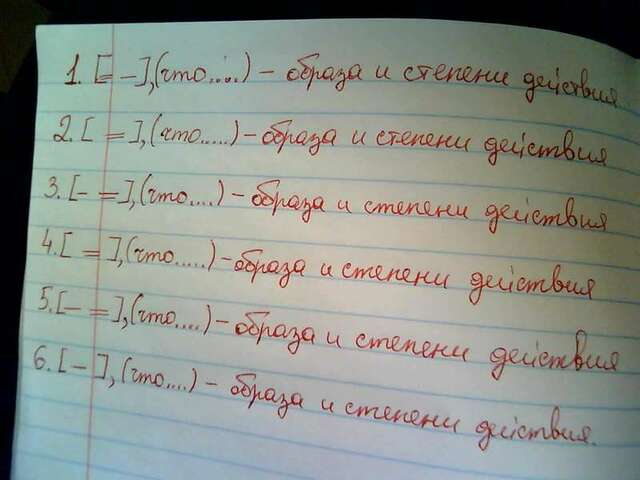 1. [= –], (что.....) – образа и степени действия
2. [ = ], (что.....) – образа и степени действия
3. [– =], (что....) – образа и степени действия
4. [ = ], (что.....) – образа и степени действия
5. [– =], (что....) – образа и степени действия
6. [ – ], (что....) – образа и степени действия.